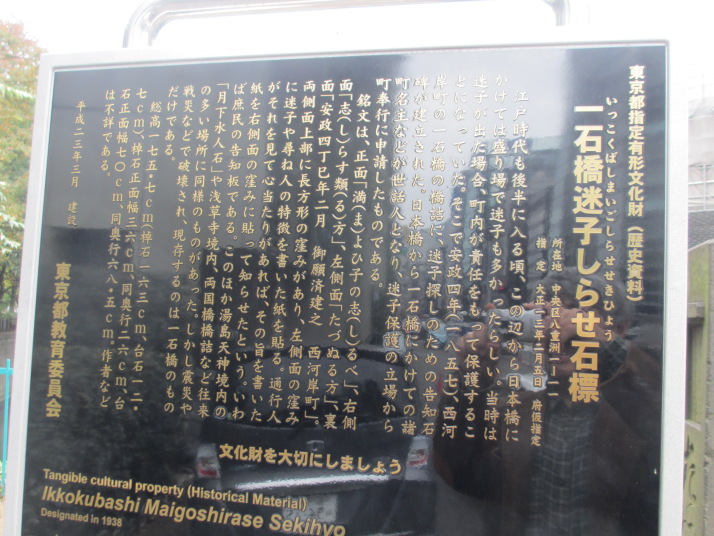 東京都指定有形文化財（歴史資料）
いっこくばしまいごしらせせきひょう
一石橋迷子しらせ石標
所在地 中央区八重洲一－一一
指定 大正一三年二月五日 府仮指定
江戸時代も後半に入る頃、この辺から日本橋に
かけては盛り場で迷子も多かったらしい。当時は
迷子が出た場合、町内が責任をもって保護するこ
とになっていた。そこで安政四年（一八五七）、西河
岸町の一石橋の橋詰に、迷子探しのための告知石
碑が建立された。日本橋から一石橋にかけての諸
町名主などが世話人となり、迷子保護の立場から
町奉行に申請したものである。
銘文は、正面「満（ま）よひ子の志（し）るべ」、右側
面「志（し）らす類（る）方」、左側面「たづぬる方」、裏
面「安政四丁巳年二月 御願済建之 西河岸町」。
両側面上部に長方形の窪みがあり、左側面の窪み
に迷子や尋ね人の特徴を書いた紙を貼る。通行人
がそれを見て心当たりがあれば、その旨を書いた
紙を右側面の窪みに貼って知らせたという。いわ
ば庶民の告知板である。このほか湯島天神境内の
「月下氷人石」や浅草寺境内、両国橋橋詰など往来
の多い場所に同様のものがあった。しかし震災や
戦災などで破壊され、現存するのは一石橋のもの
だけである。
総高一七五・七cm（棹石一六三cm、台石一二・
七cm）、棹石正面幅三六cm、同奥行二六cm、台
石正面幅七〇cm、同奥行六八・五cm。作者など
は不詳である。
平成二三年三月 建設
東京都教育委員会
文化財を大切にしましょう
Tangible cultural property (Historical Material)
Ikkokubashi Maigoshirase Sekihyo
Designated in 1938